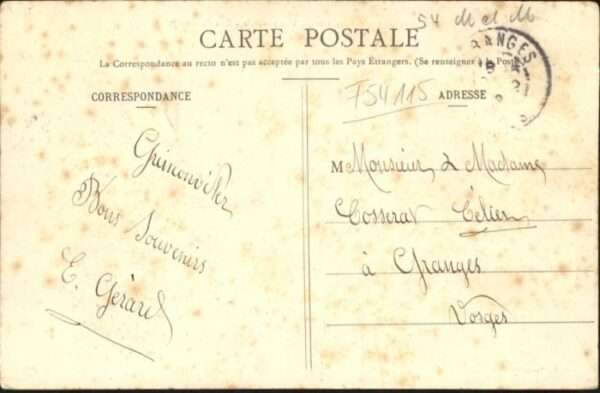 54 M et M
CARTE POSTALE
La Correspondance au recto n'est pas acceptée par tous les Pays Etrangers. (Se renseigner à la Poste)
GRANGES
CORRESPONDANCE
F54115
ADRESSE
Grimonviller
Bons Souvenirs
E. Gérard
M Monsieur & Madame
Cosserat Célien
à Granges
Vosges